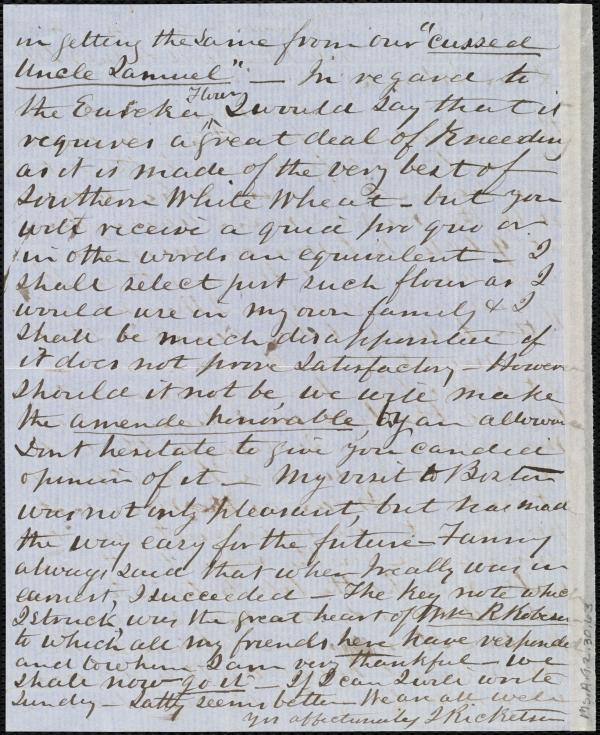 in getting the same from our "cussed
Uncle Samuel" — In regard to
the Eureka Flour, I would say that it
requires a great deal of Kneeding
as it is made of the very best of
Southern White Wheat — but you
will receive a quid pro quo or
in other words an equivalent — I
shall select just such flour as I
would use in my own family & I
shall be much disappointed if
it does not prove satisfactory — However
should it not be, we will make
the amende honorable, by an allowan
Dont hesitate to give your candid
opinion of it — My visit to Boston
was not only pleasant, but has made
the way easy for the future — Fanny
always said that when I really was in
earnest, I succeeded — The key note which
I struck, was the great heart of R Robeson
to which all my friends here have responde
and to whom I am very thankful — we
shall now go it — If I can I will write
Sunday — seems better — We are all well
Yrs affectionately J Ricketson
Ms.A.9.2.30.63